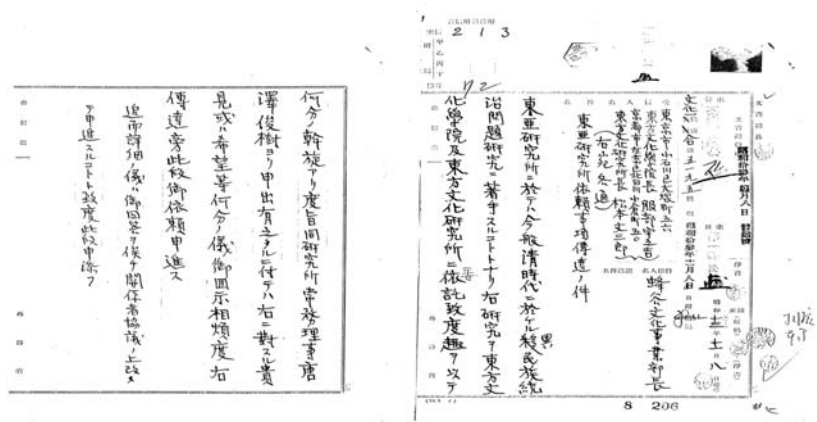 213
72
文化一合第五一九五號
昭和拾參年拾壹月八日
東京市小石川區大塚町五六
東方文化學院長 服部宇之吉
京都市左京區北白川小倉町五〇
東方文化研究所長 松本文三郎
(右宛各通)
蜂谷文化事業部長
東亜研究所依頼事項傳達ノ件
東亜研究所ニ於テハ今般清時代ニ於ケル異民族統
治問題研究ニ著手スルコトトナリ右研究ヲ東方文
化學院及東方文化研究所ニ委託致度趣ヲ以テ
8 206
何分ノ幹旋アリ度旨同研究所常務理事唐
澤俊樹ヨリ申出有之タルニ付テハ右ニ對スル貴
見或ハ希望等何分ノ儀御回示相煩度右
傳達旁此段御依頼申進ス
追而詳細ノ儀ハ御回答ヲ俟チ關係者協議ノ上改メ
テ申進スルコトト致度此段申添フ
外務省